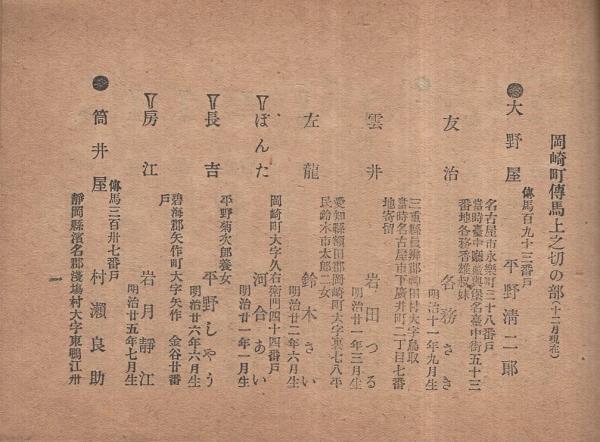 岡崎町傳馬上之切の部(十二月現在)
傳馬百九十三番戸
大野屋 平野淸二郎
名古屋市永樂町三十八番戸
當時臺中廳 堡名臺中街五十三
番地各務香雄叔妹
友治 各務さき
明治十一年九月生
三重縣員辨郡 田村大字鳥取
當時名古屋市下廣井町二丁目七番
地寄留
雲井 岩田つる
明治廿一年三月生
愛知縣額田郡岡崎町大字裏七八平
民鈴木市太郎二女
左龍 鈴木さい
明治廿二年六月生
岡崎町大字久右衛門四十四番戸
ぽんた 河合あい
明治廿一年一月生
平野菊次郎養女
長吉 平野しやう
明治廿六年六月生
碧海郡矢作町大字矢作 金谷廿番
戸
房江 岩月靜江
明治廿五年七月生
傳馬三百卅七番戸
筒井屋 村瀨良助
靜岡縣濱名郡淺塲村大字東鴨江卅
一